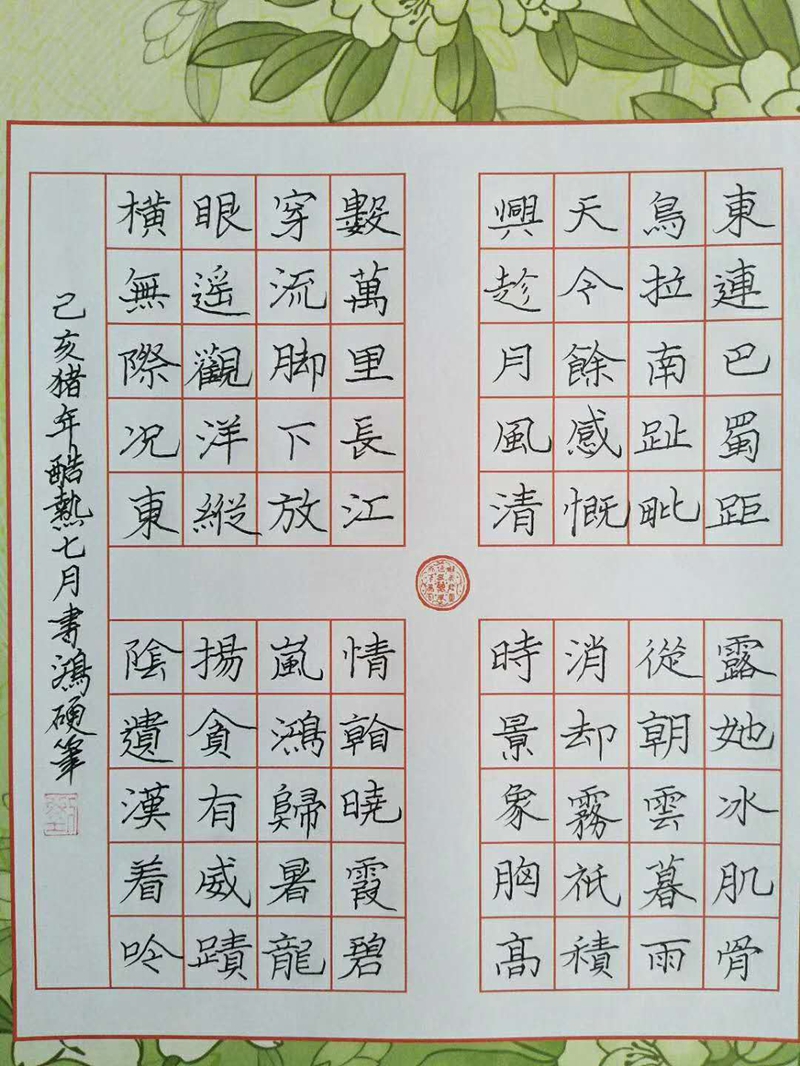 東連巴蜀距露她冰肌骨
鳥拉南趾毗從朝雲暮雨
天令餘感慨消却霧祇積
興趁月風清時景象胸高
數萬里長江情翰曉霞碧
穿流脚下放嵐鴻歸暑龍
眼遥觀洋縱揚貪有威蹟
橫無際况東陰遺漢着呤
己亥猪年酷熱七月書鴻硬筆